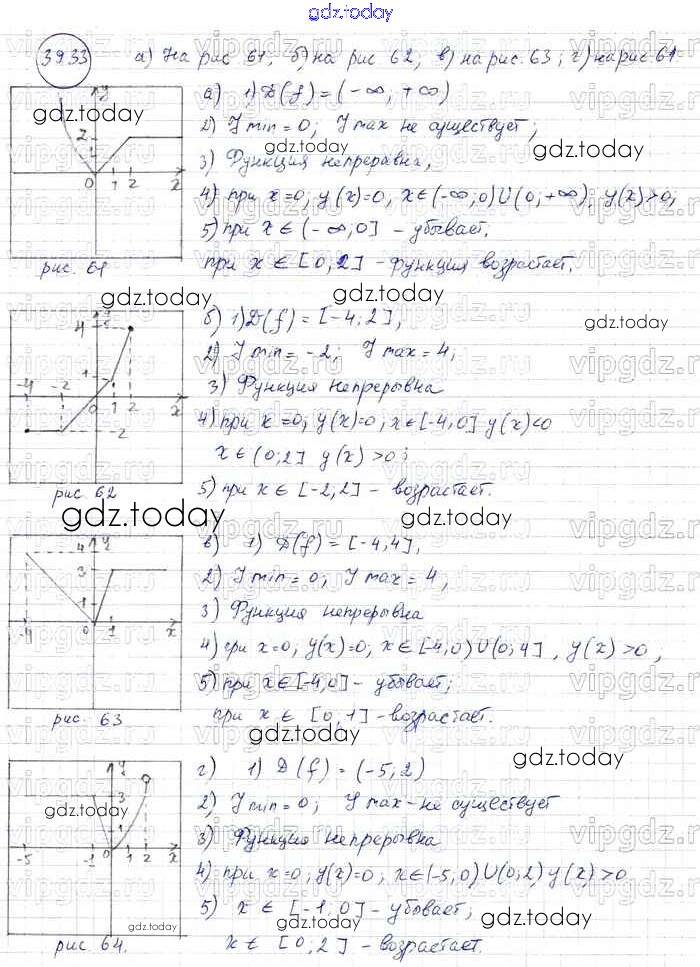 gdz.today
39.33 а) На рис 61; б) на рис 62; в) на рис. 63; г) на рис. 61
а) 1) D(f) = (-∞, +∞)
2) Ymin = 0; Ymax не существует;
3) Функция непреравна,
4) при x=0; y(x)=0, x∈(-∞;0)∪(0;+∞), y(x)>0;
5) при x∈(-∞;0] - убывает,
при x∈[0,2] - функция возрастает.
y
2
1
0 1 2 x
рис. 61
б) 1) D(f) = [-4;2],
2) Ymin = -2; Ymax = 4;
3) Функция непрерывна
4) при x=0; y(x)=0, x∈[-4,0] y(x)<0
x∈(0;2] y(x)>0;
5) при x∈[-2,2] - возрастает.
y
4
-4 -2 1 0 1 2 x
-2
рис 62
в) 1) D(f) = [-4,4],
2) Ymin = 0; Ymax = 4,
3) Функция непрерывна
4) при x=0; y(x)=0, x∈[-4,0)∪(0;4], y(x)>0,
5) при x∈[-4,0] - убывает;
при x∈[0,1] - возрастает.
4 y
3
1
-4 0 1 x
рис. 63
г) 1) D(f) = (-5;2)
2) Ymin = 0; Ymax - не существует
3) Функция непрерывна
4) при x=0; y(x)=0, x∈(-5,0)∪(0,2) y(x)>0
5) x∈[-1,0] - убывает;
x∈[0;2] - возрастает.
y
3
1
-5 -1 0 1 2 x
рис 64.
gdz.today
gdz.today
gdz.today
gdz.today
gdz.today
gdz.today
gdz.today
gdz.today
gdz.today
gdz.today
gdz.today
gdz.today
gdz.today
gdz.today
vipgdz.ru